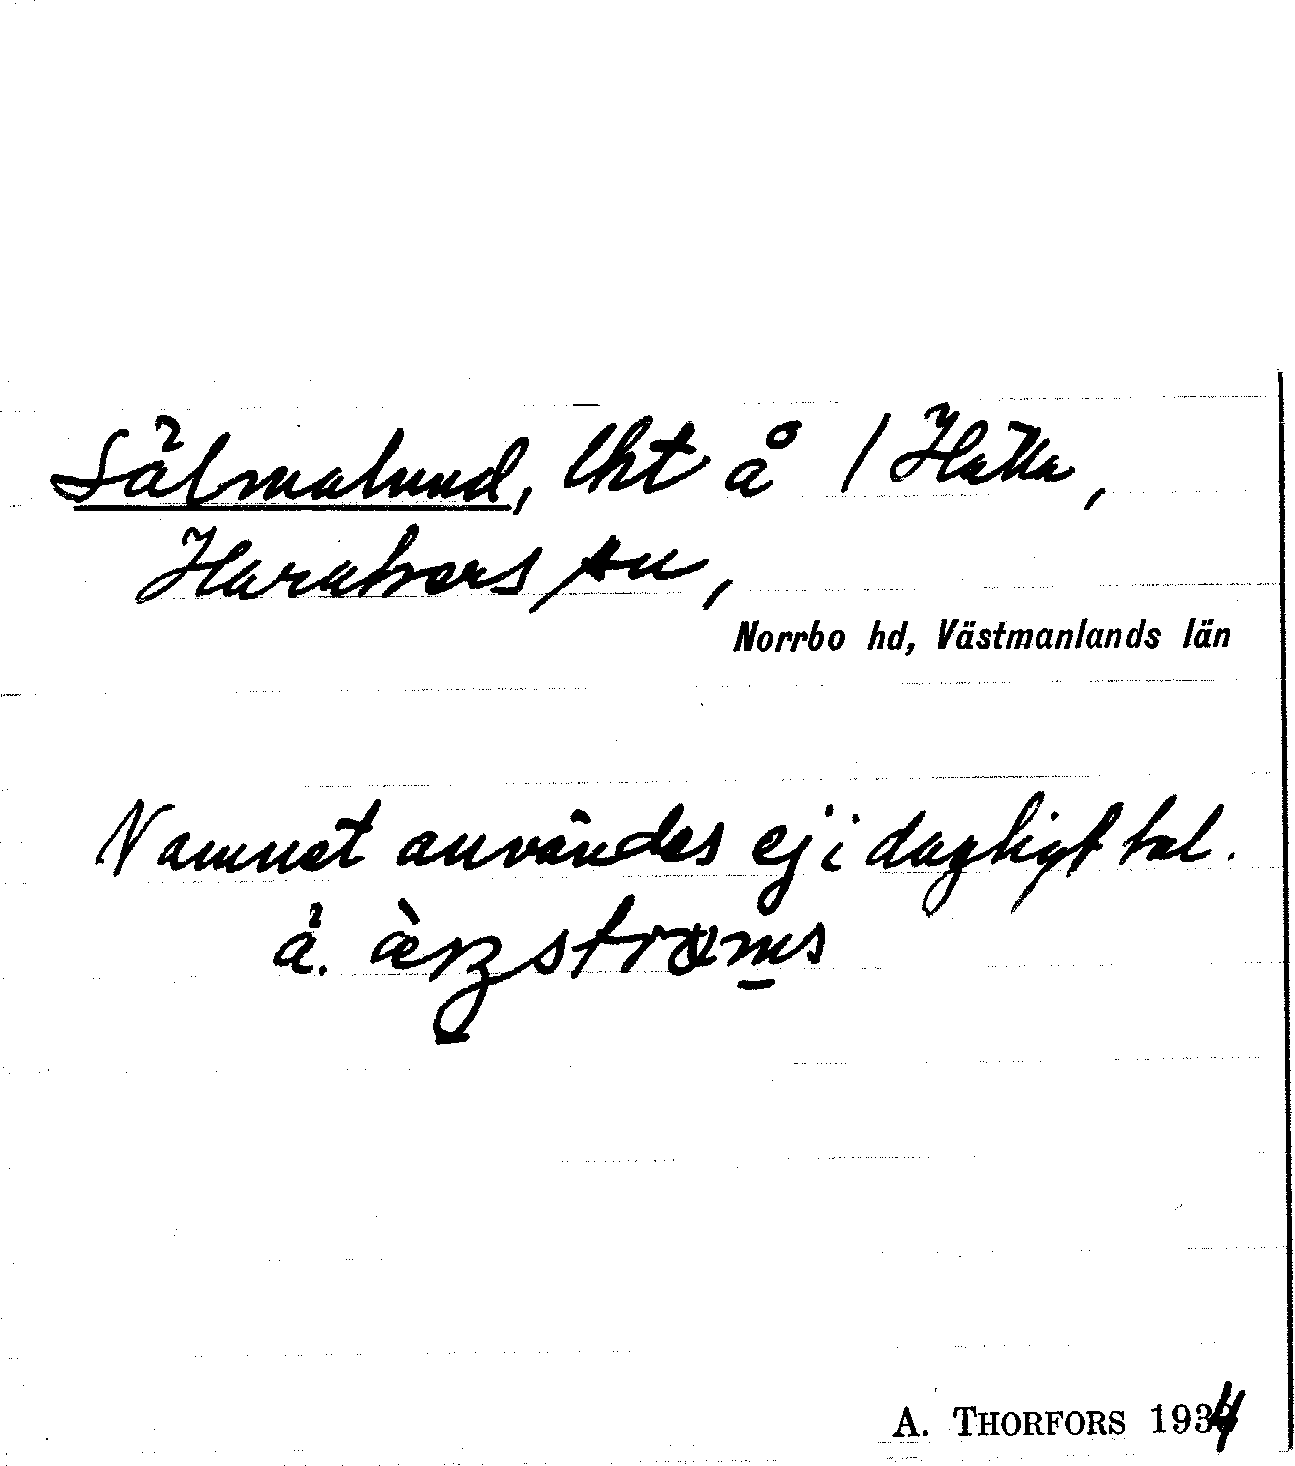 Sälmalund, lht å 1 Hälla,
Harakers sn,
Norrbo hd, Västmanlands län
Namnet användes ej i dagligt tal.
å.
A. THORFORS 1934